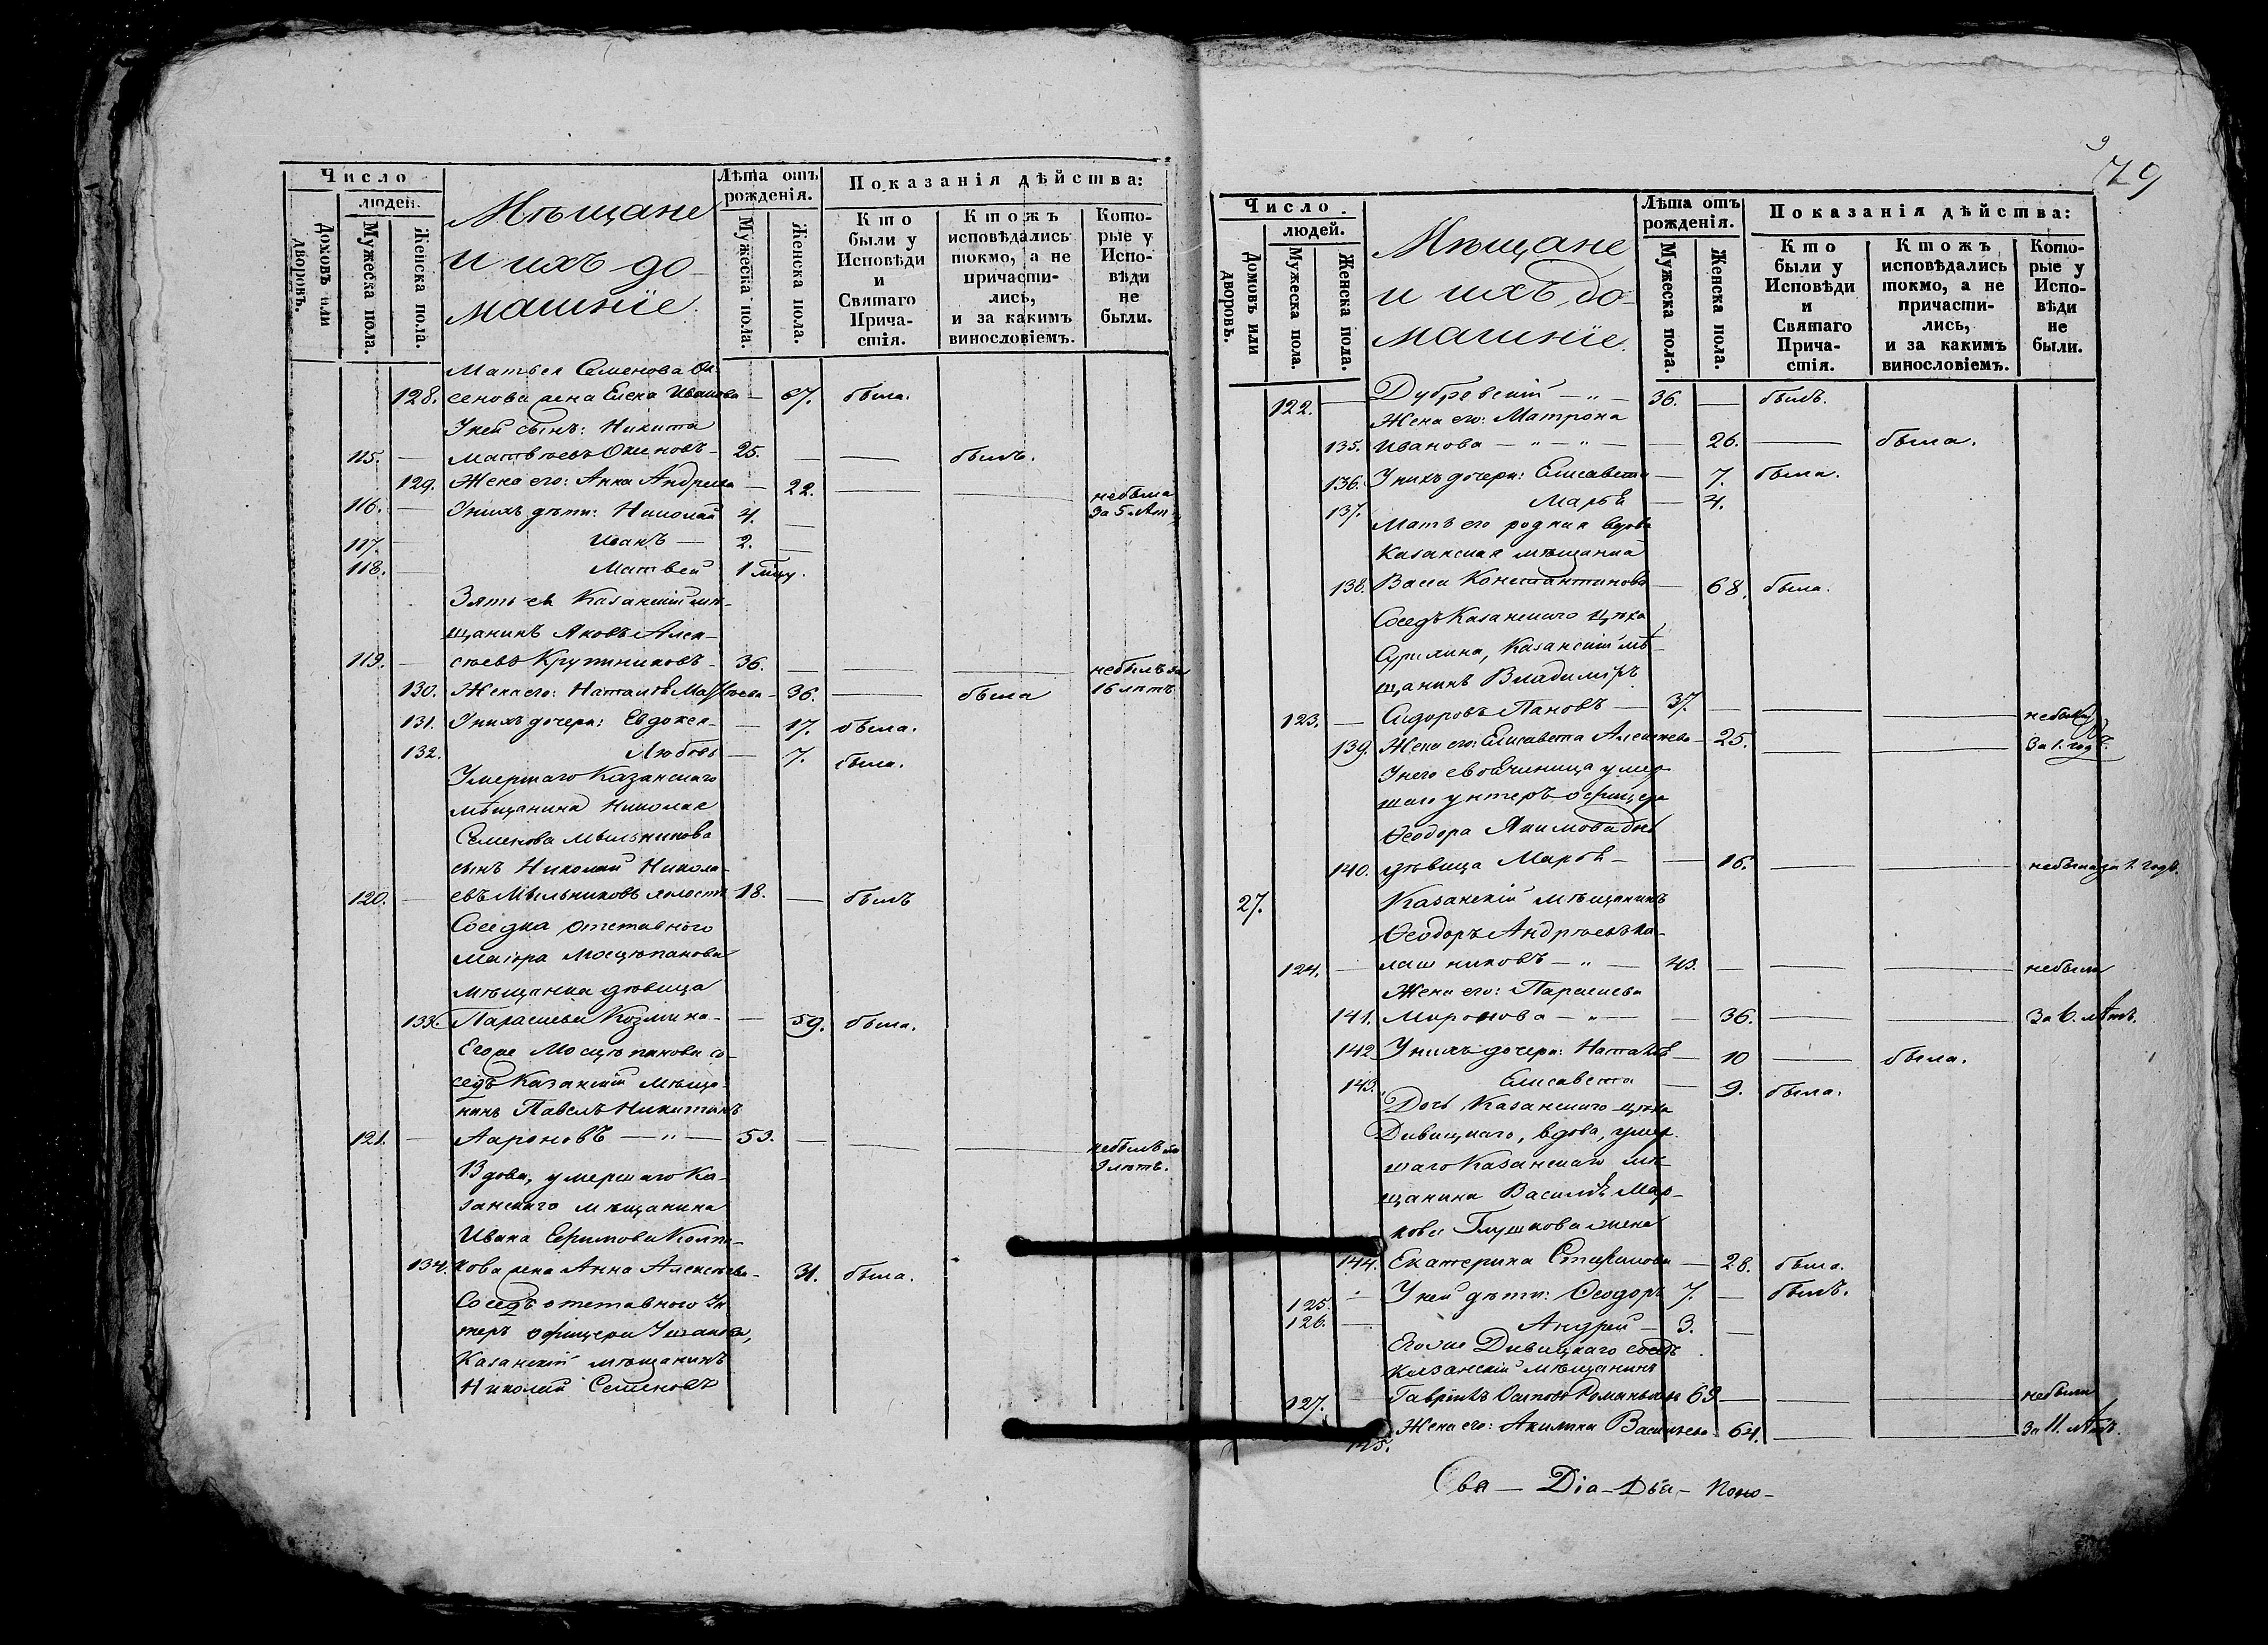 Число
людей.
Домовъ или дворовъ.
Мужеска пола.
Женска пола.
Мѣщане
и ихъ до-
машніе.
Лѣта отъ
рожденія.
Мужеска пола.
Женска пола.
Показанія дѣйства:
Кто
были у
Исповѣди
и
Святаго
Прича-
стія.
Ктожъ
исповѣдались
токмо, а не
причасти-
лись,
и за какимъ
винословіемъ.
Кото-
рые у
Испо-
вѣди
не
были.
Матвея Семенова
128. жена Елена Иванова — 67. была.
У ней сынъ: Никита
115. — Матвѣевъ 25. — — былъ.
129. Жена его: Анна Андреева — 22. — — небыла
116. — У нихъ дѣти: Николай 4. — за 5 лѣтъ
117. — Иванъ — 2. —
118. — Матвей 1
Зять ея Казанскій мѣ-
щанинъ Яковъ Алек-
119. — сѣевъ Крупниковъ — 36. — — — небылъ за
130. Жена его: Наталья Матвѣева — 36. — была 16 лѣтъ
131. У нихъ дочери: Евдокея — — 17. была.
132. Любовь — 7. была.
Умершаго Казанскаго
мѣщанина Николая
Семенова Мыльникова
сынъ Николай Никола-
120. — евъ Мыльниковъ холостъ 18. — былъ
Соседка отставного
Маіора Мосцѣпанова
мѣщанка дѣвица
133. Парасковья Козмина — — 59. была.
Егоже Мосцѣпанова со-
седъ Казанскій мѣща-
нинъ Павелъ Никитинъ
121. — Аароновъ — „ — 53. — — — небылъ
9 лѣтъ.
Вдова, умершаго Ка-
занскаго мѣщанина
Ивана Ефимова
134. жена Анна Алексѣева — 31. была.
Соседъ отставного Ун-
теръ офицера Ушакова,
Казанскій мѣщанинъ
Николай Семеновъ
79
Число
людей.
Домовъ или дворовъ.
Мужеска пола.
Женска пола.
Мѣщане
и ихъ до-
машніе.
Лѣта отъ
рожденія.
Мужеска пола.
Женска пола.
Показанія дѣйства:
Кто
были у
Исповѣди
и
Святаго
Прича-
стія.
Ктожъ
исповѣдались
токмо, а не
причасти-
лись,
и за какимъ
винословіемъ.
Кото-
рые у
Испо-
вѣди
не
были.
122. — Дубровскій — „ — 36. — былъ.
Жена его: Матрона
135. Иванова — „ — „ — — 26. — была.
136. У нихъ дочери: Елисавета — 7. была.
137. Марья — 4.
Мать его родная вдова
Казанская мѣщанка
138. Васса Константинова — 68. была.
Соседъ Казанскаго цѣха
Казанскій мѣ-
щанинъ Владиміръ
123. — Сидоровъ Пановъ — 37. — — — небыли
139. Жена его: Елисавета Алексѣева — 25. — — за 1. годъ.
У него своячиница умер-
шаго унтеръ офицера
Ѳеодора Якимова дочь
140. дѣвица Марья — — 16. — — небыла за 1. годъ.
27. Казанскій мѣщанинъ
Ѳеодоръ Андрѣевъ Ка-
124. — лашниковъ — „ — 43. — — — небыли
Жена его: Парасковья
141. Миронова — „ — — 36. — — За 6. лѣтъ.
142. У нихъ дочери: Наталья — 10 — была.
143. Елисавета — 9. была.
Дочь Казанскаго цѣха
Дивицкаго, вдова, умер-
шаго Казанскаго мѣ-
щанина Василья Мар-
кова Глушкова жена
144. Екатерина Стефанова — 28. была.
125. — У ней дѣти: Ѳеодоръ 7. — былъ.
126. — Андрей — 3. —
Егоже Дивицкаго соседъ
Казанскій мѣщанинъ
127. — Гаврилъ Романычевъ 69 — — — небыли
145. Жена его: Акилина Васильева — 64. — — за 11. лѣтъ.
Свя — Діа — Дья — Поно —